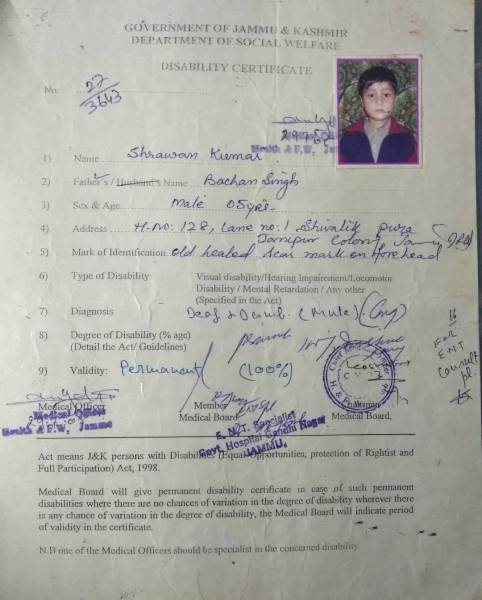 GOVERNMENT OF JAMMU & KASHMIR
DEPARTMENT OF SOCIAL WELFARE
DISABILITY CERTIFICATE
No. 27/3643
Health & F.W, Jammu
1) Name Shrawan Kumar
2) Father's / Husband's Name Bachan Singh
3) Sex & Age Male 05yrs.
4) Address H-No: 128, Lane no: 1 Shivalik pura
Janipur Colony
5) Mark of Identification Old healed scar mark on forehead
6) Type of Disability: Visual disability/Hearing Impairement/Locomotor
Disability / Mental Retardation / Any other
(Specified in the Act)
7) Diagnosis Deaf & Dumb (Mute)
8) Degree of Disability (% age)
(Detail the Act/ Guidelines)
9) Validity: Permanent (100%)
16
For
ENT
Consult
Medical Officer Member Chairman
Medical Board Medical Board,
Medical Officer
Health & F.W, Jammu
E. N.T. Specialist
Govt. Hospital Gandhi Nagar
JAMMU.
Act means J&K persons with Disabilities (Equal Opportunities, protection of Rightist and
Full Participation) Act, 1998.
Medical Board will give permanent disability certificate in case of such permanent
disabilities where there are no chances of variation in the degree of disability wherever there
is any chance of variation in the degree of disability, the Medical Board will indicate period
of validity in the certificate.
N.B one of the Medical Officers should be specialist in the concerned disability